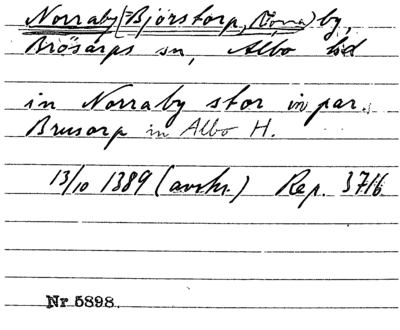 Norraby (Björstorp, Norra) by,
Brösarps sn, Albo hd
in Norraby stor in par.
Brusorp in Albo H.
13/10 1389 (avskr.) Rep. 3716
Nr 5898.